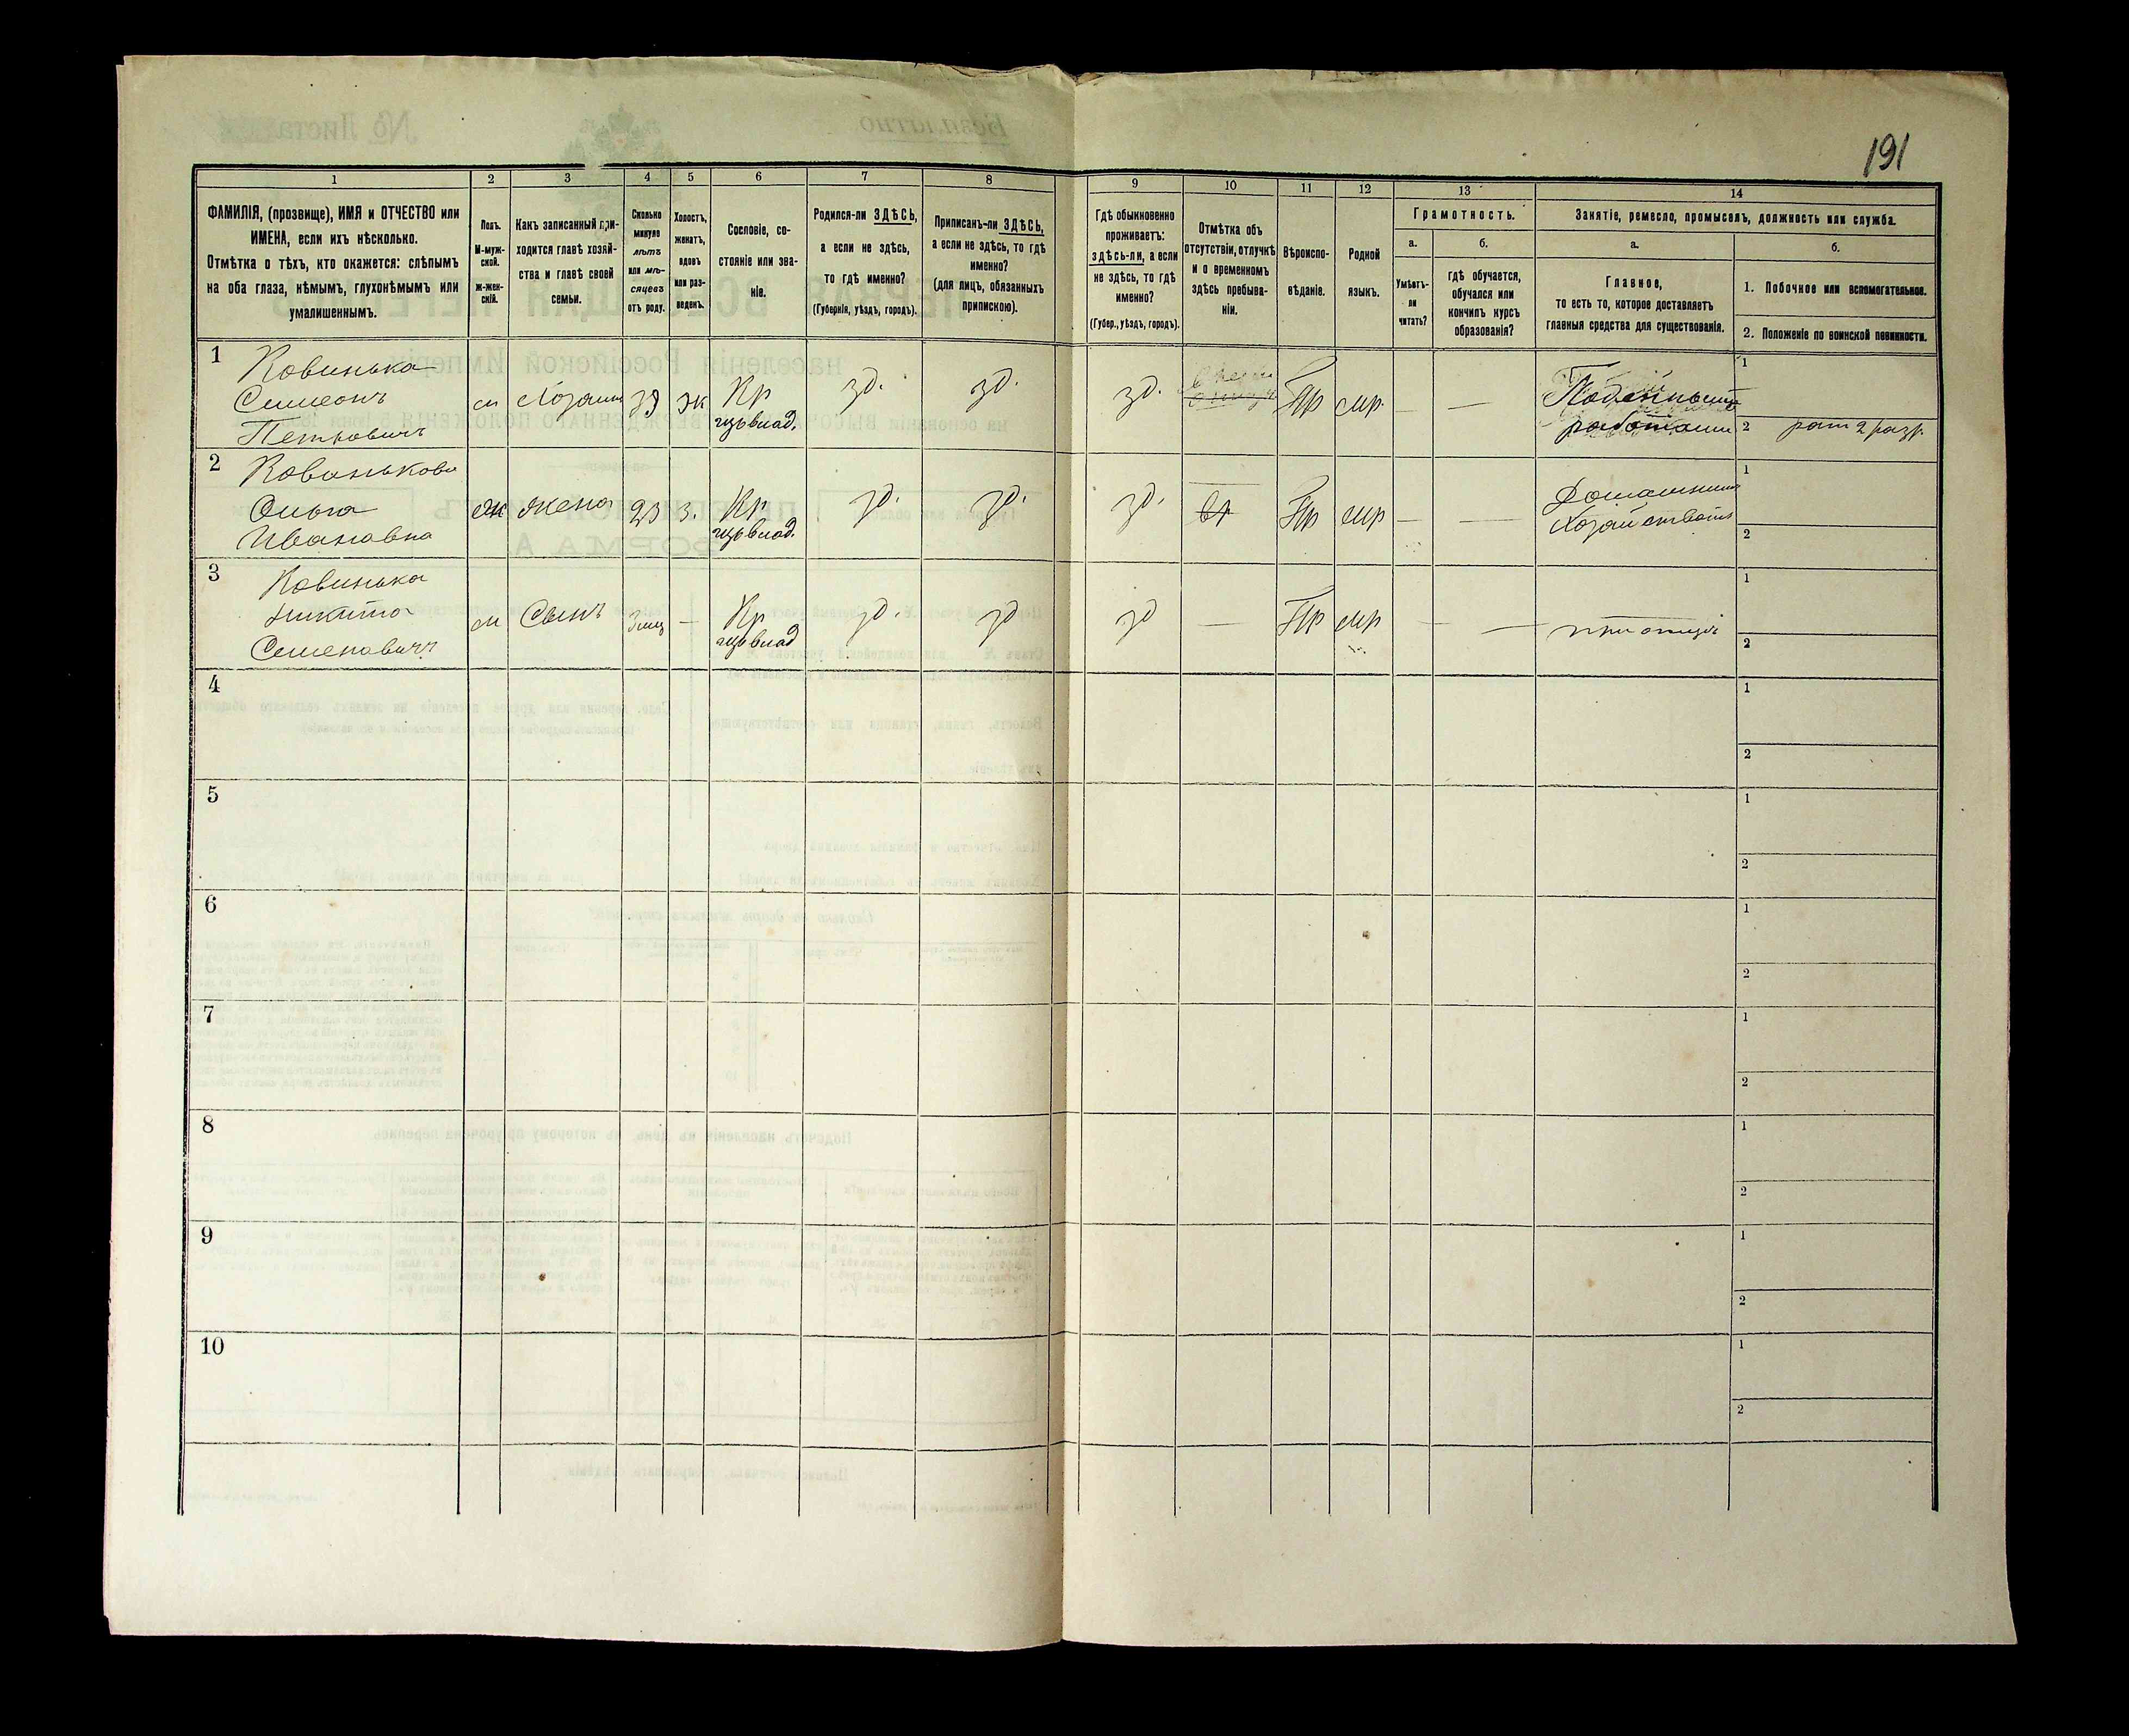 191
1
2
3
4
5
6
7
8
9
10
11
12
13
14
ФАМИЛІЯ, (прозвище), ИМЯ и ОТЧЕСТВО или
ИМЕНА, если ихъ нѣсколько.
Отмѣтка о тѣхъ, кто окажется: слѣпымъ
на оба глаза, нѣмымъ, глухонѣмымъ или
умалишеннымъ.
Полъ.
М-муж-
ской.
Ж-жен-
скій.
Какъ записанный при-
ходится главѣ хозяй-
ства и главѣ своей
семьи.
Сколько
минуло
лѣтъ
или мѣ-
сяцевъ
отъ роду.
Холостъ,
женатъ,
вдовъ
или раз-
веденъ.
Сословіе, со-
стояніе или зва-
ніе.
Родился-ли ЗДѢСЬ,
а если не здѣсь,
то гдѣ именно?
(Губернія, уѣздъ, городъ).
Приписанъ-ли ЗДѢСЬ,
а если не здѣсь, то гдѣ
именно?
(для лицъ, обязанныхъ
припискою).
Гдѣ обыкновенно
проживаетъ:
здѣсь-ли, а если
не здѣсь, то гдѣ
именно?
(Губер., уѣздъ, городъ).
Отмѣтка объ
отсутствіи, отлучкѣ
и о временномъ
здѣсь пребыва-
ніи.
Вѣроиспо-
вѣданіе.
Родной
языкъ.
Грамотность.
а.
Умѣетъ-
ли
читать?
б.
гдѣ обучается,
обучался или
кончилъ курсъ
образованія?
Занятіе, ремесло, промыселъ, должность или служба.
а.
Главное,
то есть то, которое доставляетъ
главныя средства для существованія.
б.
1. Побочное или вспомогательное.
2. Положеніе по воинской повинности.
1 Ковинька
Симеонъ
Петровичъ
м Хозяинъ ж Кр зд. зд. зд. Пр мр. — —
Поденными
работами
1
2 рат 2 разр.
2 Ковинькова
Ольга
Ивановна
ж жена 23 з. Кр зд. зд. зд. Пр мр — —
Домашнимъ
Хозяйствомъ
1
2
3 Ковинька
Никита
Семеновичъ
м Сынъ 3 мц — Кр зд. зд зд — Пр мр — —
при отцѣ
1
2
4
1
2
5
1
2
6
1
2
7
1
2
8
1
2
9
1
2
10
1
2